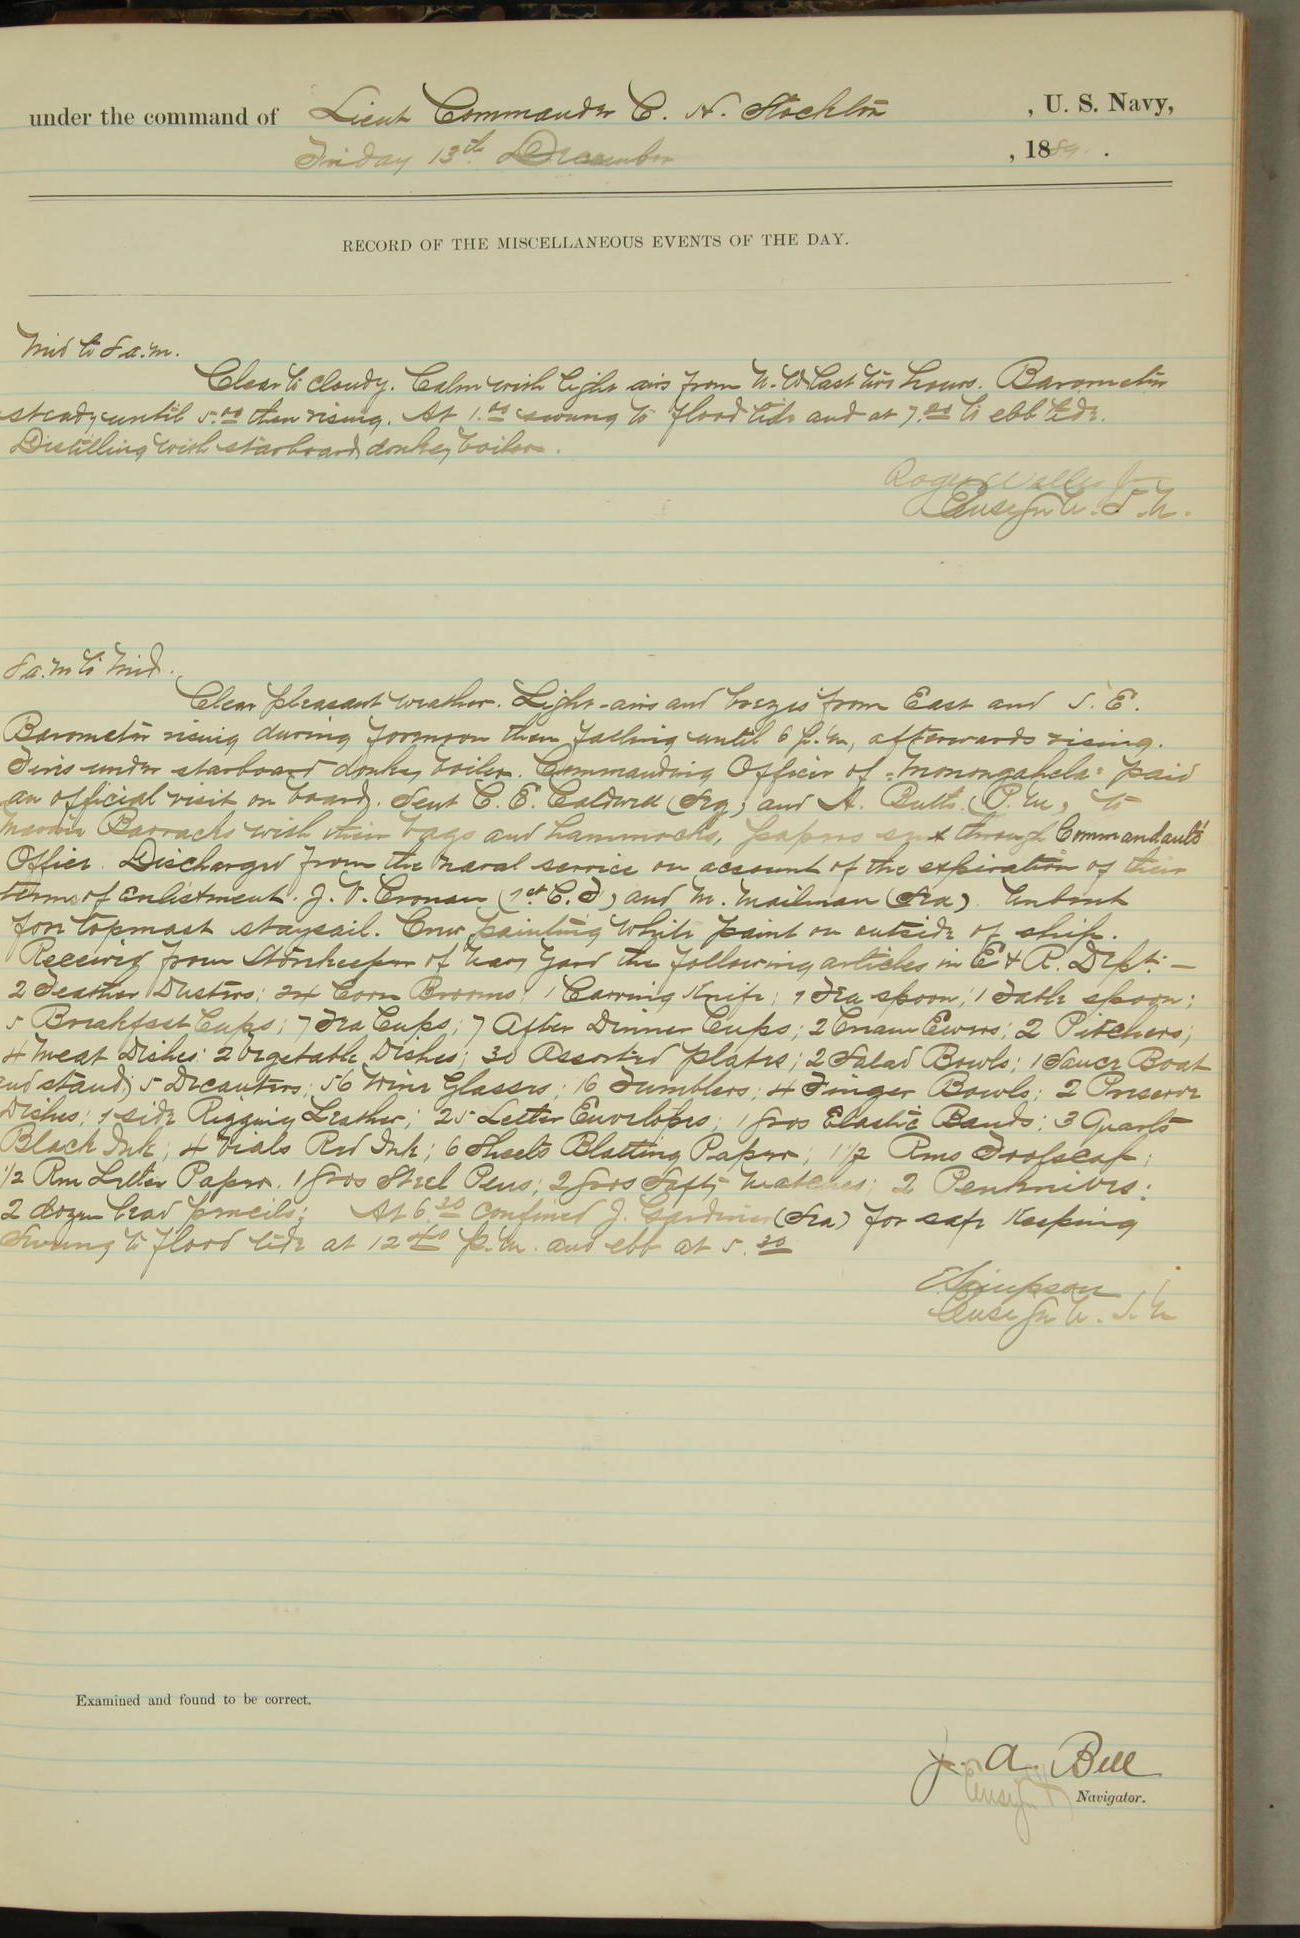 under the command of Lieut Commander C. H. Stockton, U. S. Navy,
Friday 13th December, 1889.
RECORD OF THE MISCELLANEOUS EVENTS OF THE DAY.
Mid to 8 a.m.
Clear to cloudy. Calm with light airs from N. W. last two hours. Barometer
steady until 5.00 then rising. At 1.00 swung to flood tide and at 7.20 to ebb tide.
Distilling with starboard donkey boiler.
Roger Welles Jr
Ensign U. S. N.
8 a.m to Mid.
Clear pleasant weather. Light airs and breezes from East and S. E.
Barometer rising during forenoon then falling until 6 p.m, afterwards rising.
Fires under starboard donkey boiler. Commanding Officer of "Monongahela" paid
an official visit on board. Sent C. E. Caldwell (Sea) and A. Butts (P.M.) to
Marine Barracks with their bags and hammocks, papers sent through Commandant's
Office. Discharged from the naval service on account of the expiration of their
terms of enlistment. J. V. Cronan (1st C. F) and M. Mailman (Sea). Unbent
fore topmast staysail. Crew painting white paint on outside of ship.
Received from Storekeeper of Navy Yard the following articles in E & R. Dept: —
2 Feather Dusters; 24 Corn Brooms; 1 Carving Knife; 7 Tea spoon; 1 Table spoon;
5 Breakfast Cups; 7 Tea Cups; 7 After Dinner Cups; 2 Cream Ewers; 2 Pitchers;
4 Meat Dishes; 2 Vegetable Dishes; 30 Assorted plates; 2 Salad Bowls; 1 Sauce Boat
and stand; 5 Decanters; 56 Wine Glasses; 16 Tumblers; 4 Finger Bowls; 2 Preserve
Dishes; 1 side Rigging Leather; 25 Letter Envelopes; 1 gros Elastic Bands; 3 Quarts
Black Ink; 4 vials Red Ink; 6 Sheets Blotting Paper; 1 1/2 Rms Foolscap;
1/2 Rm Letter Paper. 1 gros Steel Pens; 2 gros Safty Matches; 2 Penknives;
2 dozen lead pencils; At 6.30 confined J. Gardiner (Sea) for safe keeping
Swung to flood tide at 12.40 p.m. and ebb at 5.30
E Simpson
Ensign U. S. N
Examined and found to be correct.
J. A. Bell
Ensign
Navigator.